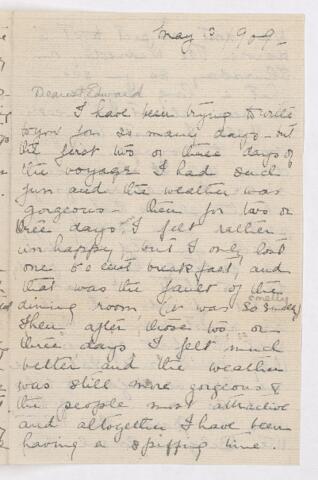 May 3 1909 –
Dearest Edward
I have been trying to write
to you for so many days – but
the first two or three days of
the voyage I had such
fun and the weather was
gorgeous – then for two or
three days I felt rather
unhappy, but I only lost
one 50 cent breakfast, and
that was the fault of the
dining room (it was so smelly)
smelly
Then after those two or
three days I felt much
better and the weather
was still more gorgeous &
the people most attractive
and altogether I have been
having a spiffing time.